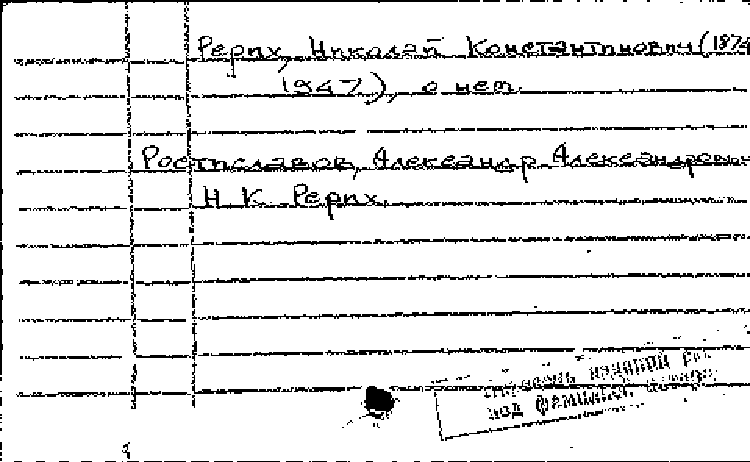 Рерих, Николай Константинович (1874
1947), о нем.
Ростиславов, Александр Александрович
Н К Рерих.
под фамилией